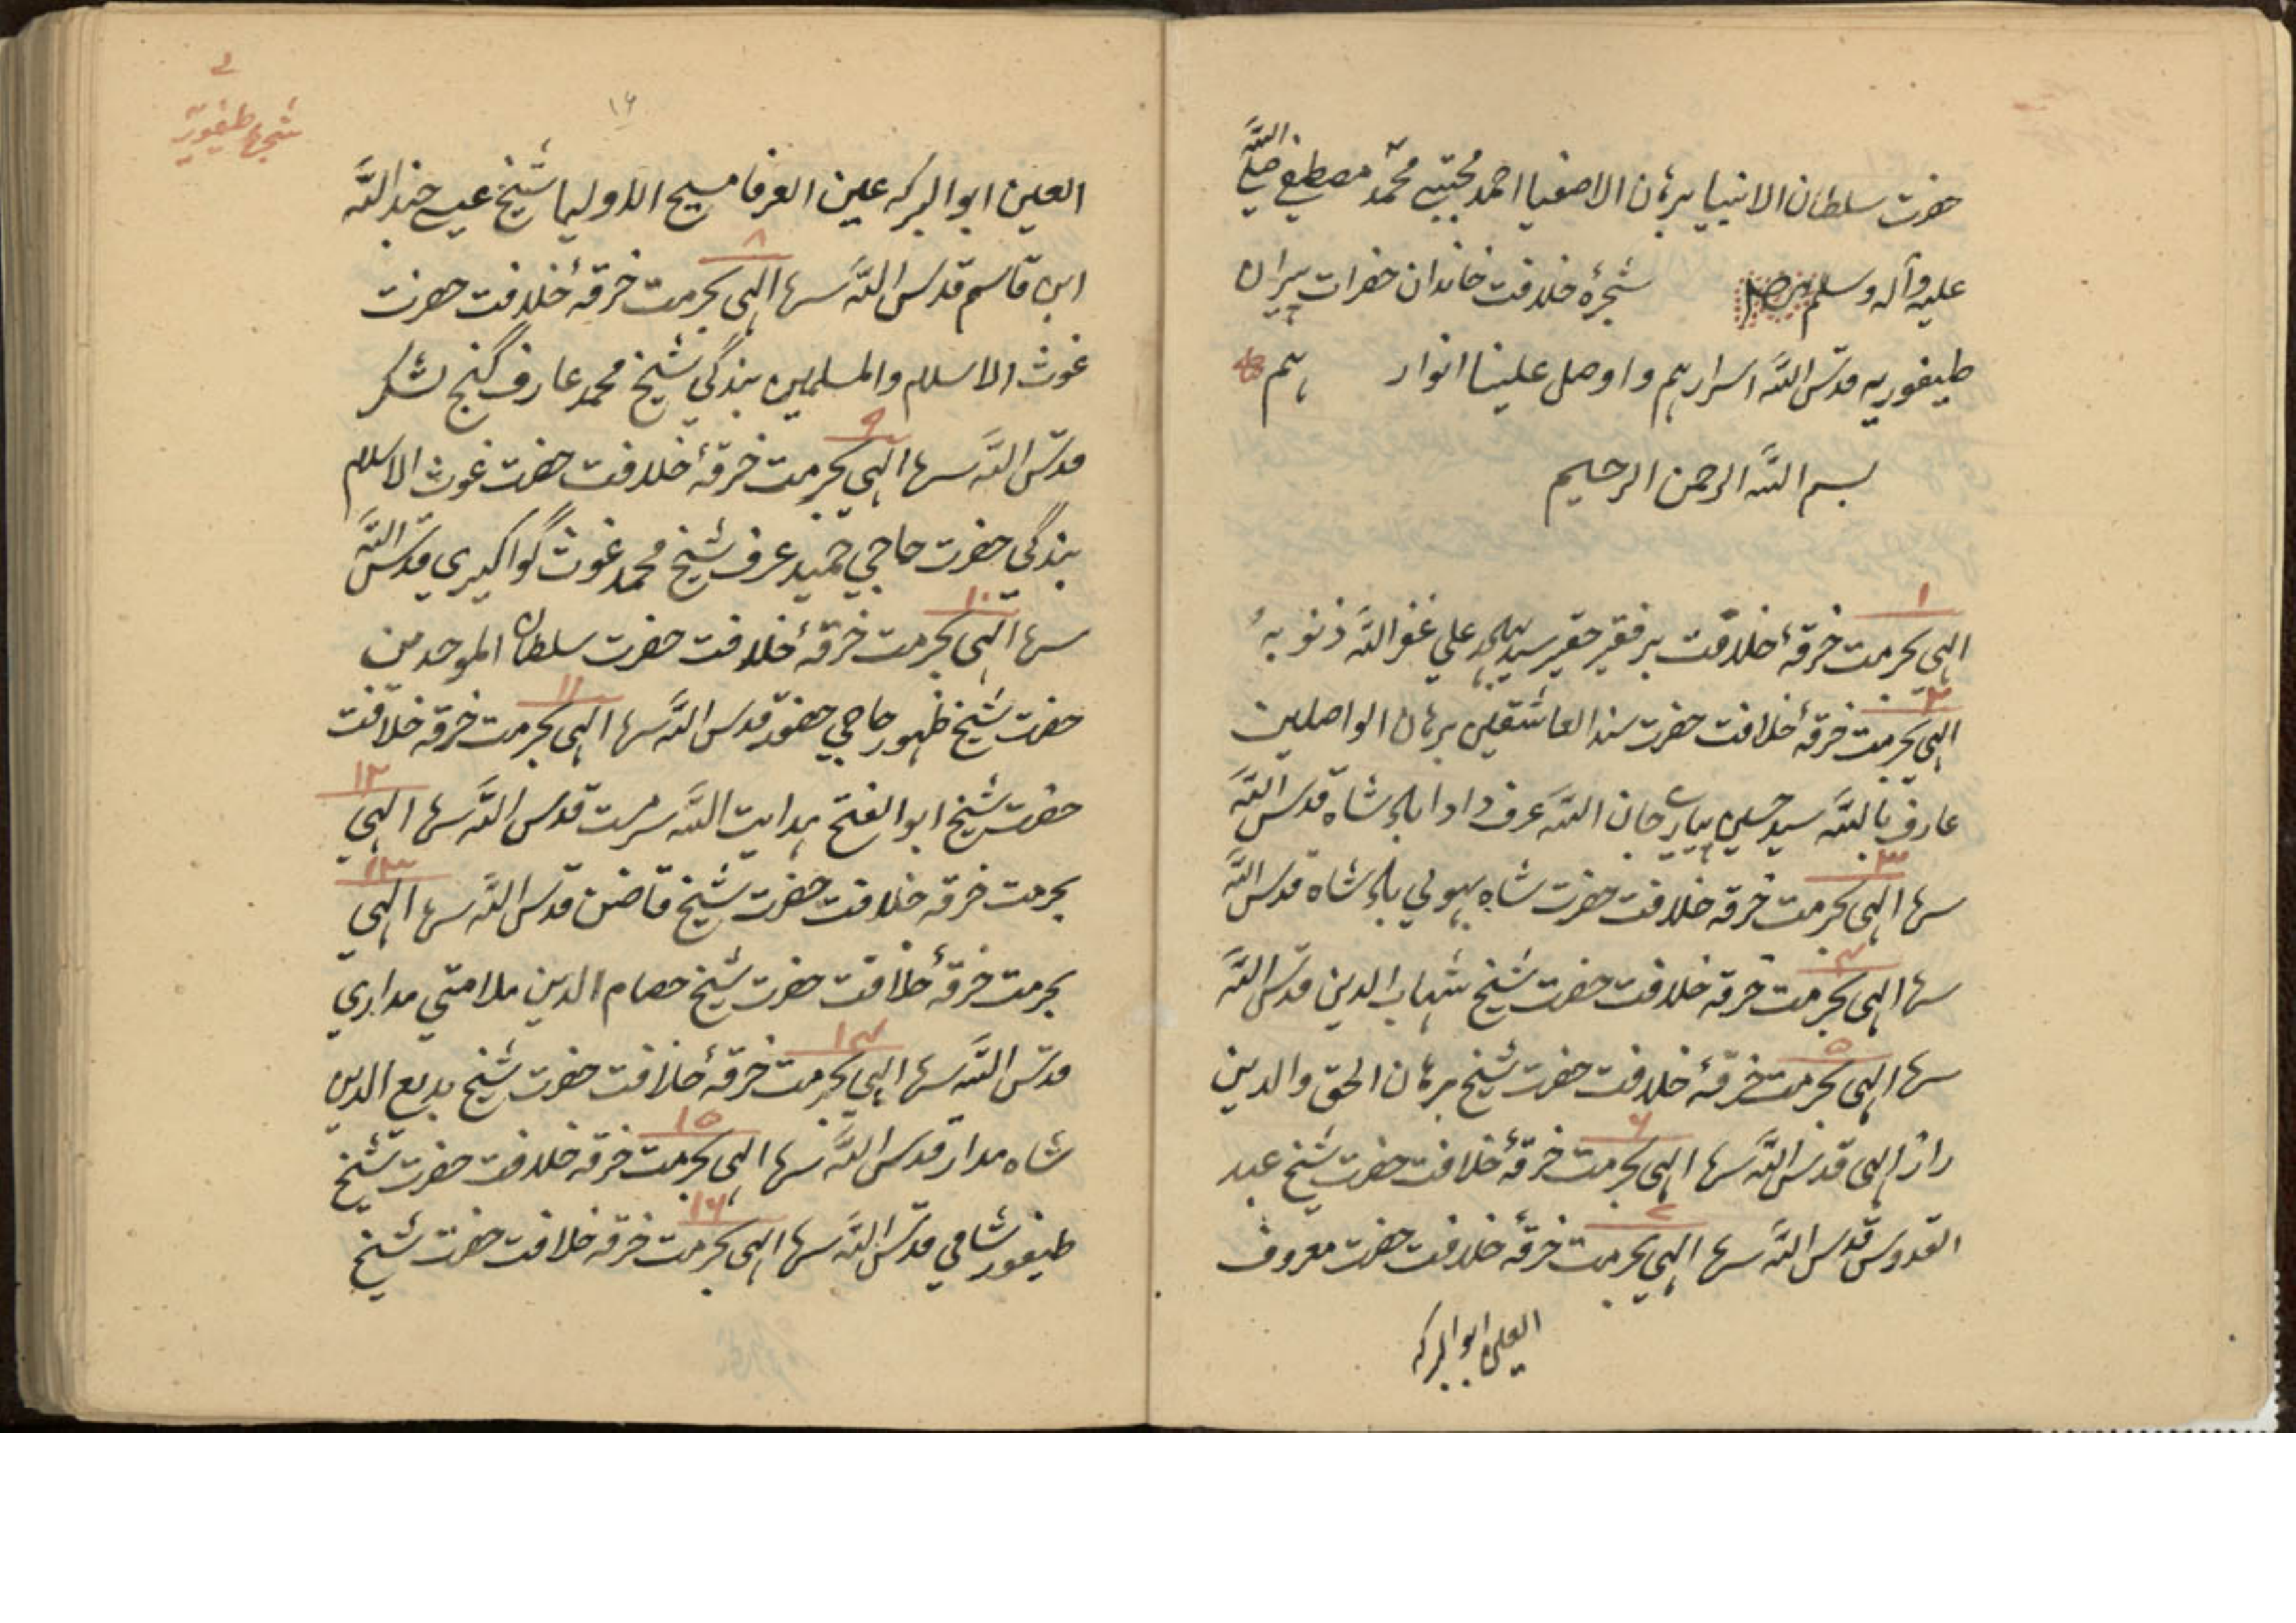 حضرت سلطان الانبیا برہان الاصفیا احمد مجتبیٰ محمد مصطفی صلی اللّٰه
علیہ وآلہ وسلم شجرۂ خلافت خاندان حضرات پیران
طیفوریہ قدس اللّٰه اسرارہم واوصل علینا انوارہم
بسم اللّٰه الرحمن الرحیم
۱
الہی بحرمت خرقۂ خلافت بر فقیر حقیر سید علی غفر اللّٰه ذنوبہ
۲
الہی بحرمت خرقۂ خلافت حضرت سند العاشقین برہان الواصلین
عارف باللّٰه سید حسین پیارے جان اللّٰه عرف دادا بلے شاہ قدس اللّٰه
۳
سرہا الہی بحرمت خرقہ خلافت حضرت شاہ بہولی بلے شاہ قدس اللّٰه
۴
سرہا الہی بحرمت خرقہ خلافت حضرت شیخ شہاب الدین قدس اللّٰه
۵
سرہا الہی بحرمت خرقۂ خلافت حضرت شیخ برہان الحق والدین
۶
راز الہی قدس اللّٰه سرہا الہی بحرمت خرقۂ خلافت حضرت شیخ عبد
۷
القدوس قدس اللّٰه سرہا الہی بحرمت خرقۂ خلافت حضرت معروف
العین ابوالبرکہ
شجرۂ طیفوریہ
۱۶
العین ابوالبرکہ عین العرفا مسیح الاولیا شیخ عیسے جند اللّٰه
۸
ابن قاسم قدس اللّٰه سرہا الہی بحرمت خرقۂ خلافت حضرت
غوث الاسلام والمسلمین بندگی شیخ محمد عارف گنج لشکر
۹
قدس اللّٰه سرہا الہی بحرمت خرقۂ خلافت حضرت غوث الاسلام
بندگی حضرت حاجی حمید عرف شیخ محمد غوث گوالیری قدس اللّٰه
۱۰
سرہا الہی بحرمت خرقۂ خلافت حضرت سلطان الموحدین
۱۱
حضرت شیخ ظہور حاجی حضور قدس اللّٰه سرہا الہی بحرمت خرقہ خلافت
۱۲
حضرت شیخ ابوالفتح ہدایت اللّٰه سرمست قدس اللّٰه سرہا الہی
۱۳
بحرمت خرقہ خلافت حضرت شیخ قاضن قدس اللّٰه سرہا الہی
بحرمت خرقۂ خلافت حضرت شیخ حصام الدین ملامتی مداری
۱۴
قدس اللّٰه سرہا الہی بحرمت خرقۂ خلافت حضرت شیخ بدیع الدین
۱۵
شاہ مدار قدس اللّٰه سرہا الہی بحرمت خرقہ خلافت حضرت شیخ
۱۶
طیفور شامی قدس اللّٰه سرہا الہی بحرمت خرقہ خلافت حضرت شیخ